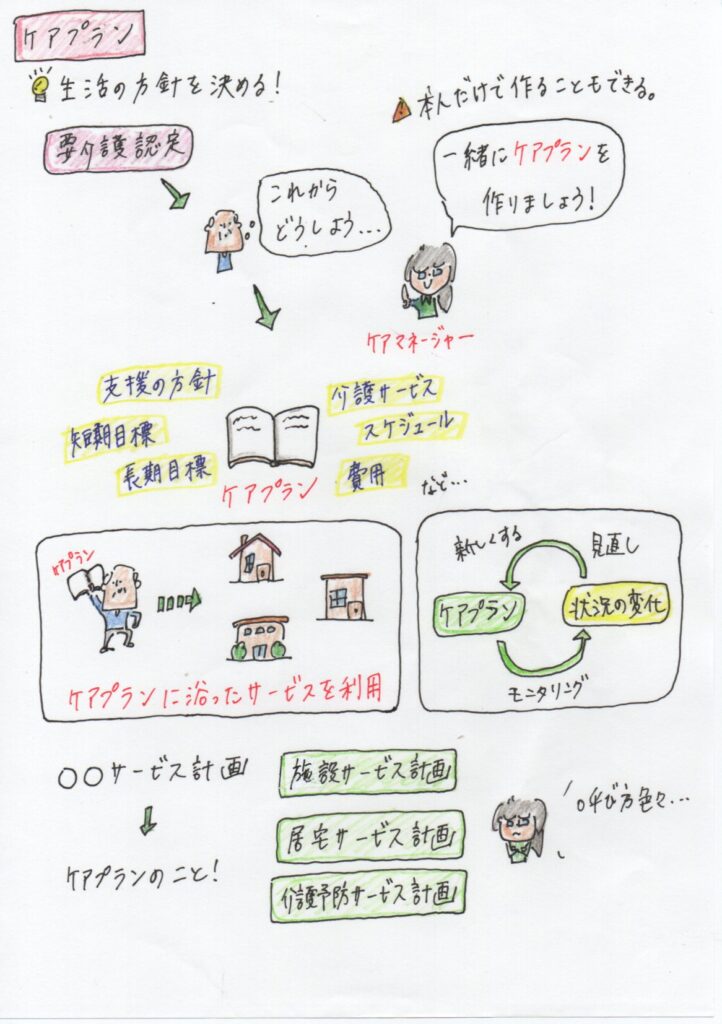 ケアプラン
生活の方針を決める!
本人だけで作ることもできる。
要介護認定
これから
どうしよう...
一緒にケアプランを
作りましょう!
ケアマネージャー
支援の方針
短期目標
長期目標
ケアプラン
介護サービス
スケジュール
費用
など...
ケアプラン
ケアプランに浴ったサービスを利用
新しくする
見直し
ケアプラン
状況の変化
モニタリング
○○サービス計画
ケアプランのこと!
施設サービス計画
居宅サービス計画
介護予防サービス計画
呼び方色々...